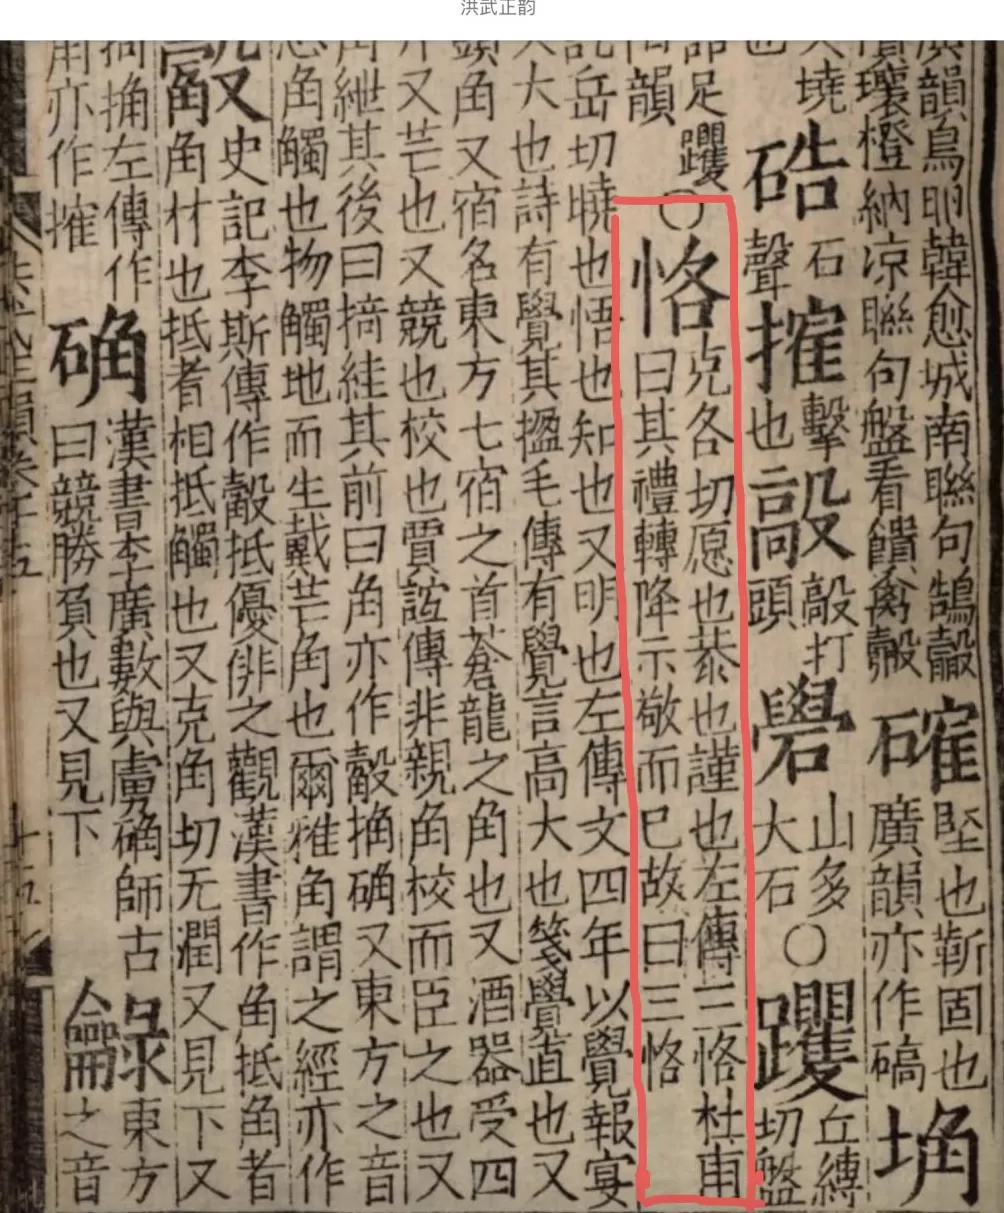 洪武正韵
廣韻鳥卵韓愈城南聯句鵠鷇
瓌橙納凉聯句盤看饋禽鷇
確
堅也靳固也
廣韻亦作碻
埆
大墝
也
硞
石
聲
搉
擊
也
毃
敲打
頭
礐
山多
大石
○
躩
丘縛
切盤
足躩
韻
○
恪
克各切愿也恭也謹也左傳三恪杜甫
曰其禮轉降示敬而已故曰三恪
訖岳切曉也悟也知也又明也左傳文四年以覺報宴
大也詩有覺其楹毛傳有覺言高大也箋覺直也又
頭角又宿名東方七宿之首蒼龍之角也又酒器受四
升又芒也又競也校也賈誼傳非親角校而臣之也又
角紲其後曰掎絓其前曰角亦作觳捔确又東方之音
角觸也物觸地而生戴芒角也爾雅角謂之經亦作
史記李斯傳作觳抵優俳之觀漢書作角抵角者
角材也抵者相抵觸也又克角切无潤又見下又
掎捔左傳作
角亦作搉
确
漢書李廣數與虜确師古
曰競勝負也又見下
龣
東方
之音